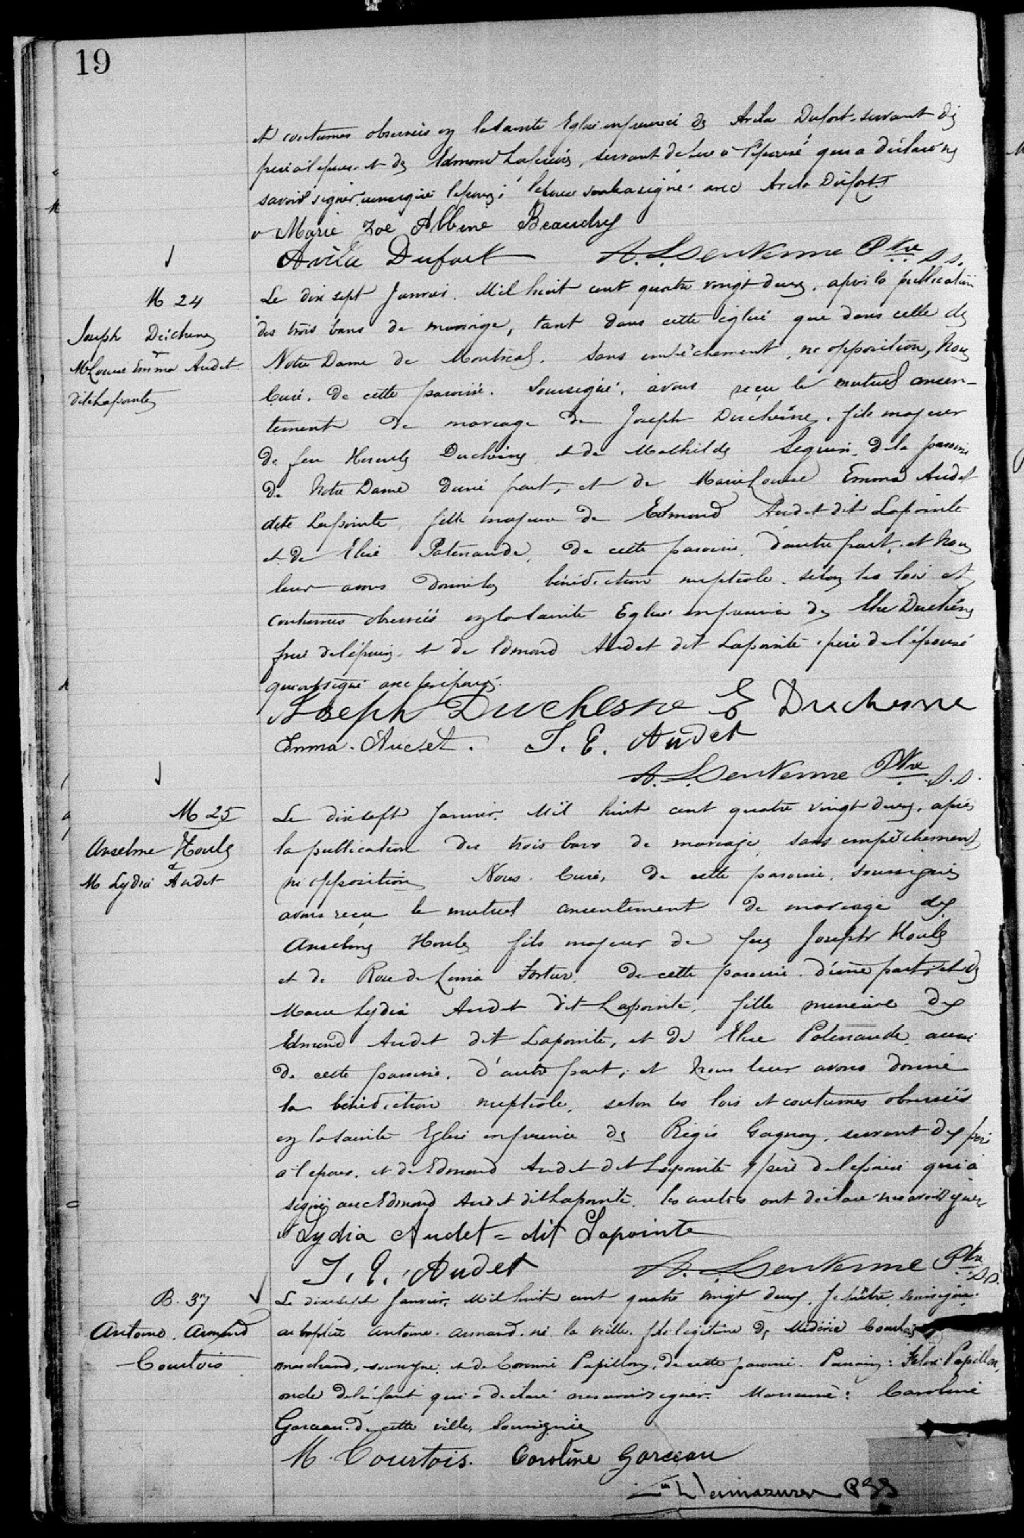 19
et coutumes observées en la sainte Eglise en présence de Avila Dufort servant de
père à l'époux et de Edmond servant de père à l'épouse qui a déclaré ne
savoir signer l'épouse soussigné avec Avila Dufort
Marie Zoé Albine Beaudry
Avila Dufort A. L. Sentenne Ptre S.S.
M 24
Joseph Duchesne
&
M Louise Emma Audet
dit Lapointe
Le dix sept Janvier Mil huit cent quatre vingt deux, après la publication
des trois bans de mariage, tant dans cette église que dans celle de
Notre Dame de Montréal. Sans empêchement, ni opposition, Nous
Curé, de cette paroisse. Soussigné, avons reçu le mutuel consen-
tement de mariage de Joseph Duchêsne, fils majeur
de feu Duchêsne et de Mathilde Seguin de la paroisse
de Notre Dame d'une part, et de Marie Louise Emma Audet
dite Lapointe, fille majeure de Edmond Audet dit Lapointe
et de Elise Patenaude, de cette paroisse, d'autre part, et Nous
leur avons donné la bénédiction nuptiale selon les lois et
coutumes observées en la sainte Eglise en présence de Duchêsne
frère de l'époux et de Edmond Audet dit Lapointe père de l'épouse
qui ont signé avec les époux.
Joseph Duchesne E Duchesne
Emma Audet. J. E. Audet
A. L. Sentenne Ptre S.S.
M 25
Anselme Houle
&
M Lydia Audet
Le dix sept Janvier Mil huit cent quatre vingt deux, après
la publication des trois bans de mariage sans empêchement
ni opposition Nous Curé, de cette paroisse, soussigné
avons reçu le mutuel consentement de mariage de
Anselme Houle fils majeur de feu Joseph Houle
et de Rose de Lima Fortier de cette paroisse d'une part, et de
Marie Lydia Audet dit Lapointe, fille mineure de
Edmond Audet dit Lapointe, et de Elise Patenaude aussi
de cette paroisse, d'autre part, et Nous leur avons donné
la bénédiction nuptiale, selon les lois et coutumes observées
en la sainte Eglise en présence de Régis Gagnon, servant de père
à l'époux, et de Edmond Audet dit Lapointe père de l'épouse qui a
signé avec Edmond Audet dit Lapointe, les autres ont déclaré ne savoir signer
Lydia Audet = dit Lapointe
J. E. Audet A. L. Sentenne Ptre S.S.
B. 37
Antoine Armand
Courtois
Le dix sept Janvier, Mil huit cent quatre vingt deux, Je Prêtre soussigné
ai baptisé Antoine Armand né la veille, fils légitime de Médéric Courtois
marchand, soussigné et de Corinne Papillon, de cette paroisse. Parrain: Félix Papillon,
oncle de l'enfant qui a déclaré ne savoir signer. Marraine: Caroline
Garceau de cette ville, soussignée
M. Courtois. Caroline Garceau
PSS